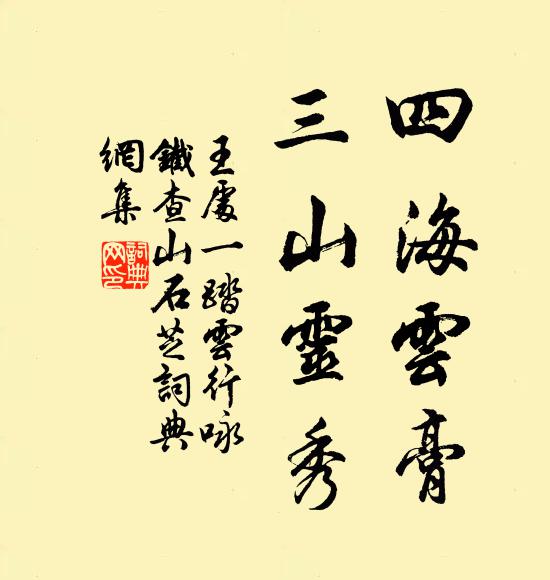 四海雲膏
三山靈秀
王處一踏雲行咏
鐵查山石芝詞典
網集
詞典
网印